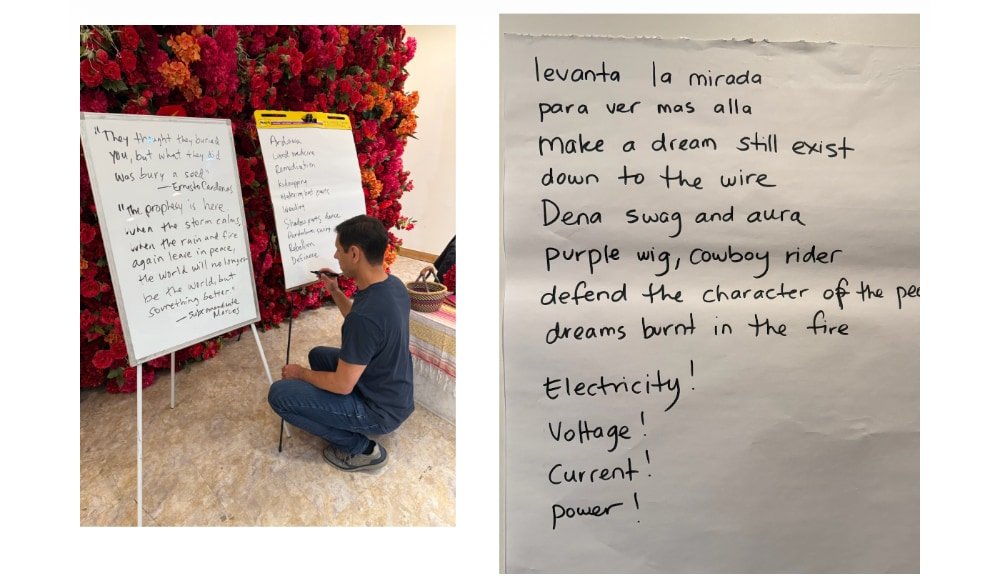 "They thought they buried
you, but what they did
was bury a seed"
— Ernesto Cardenas
"The prophesy is here.
when the storm calms,
when the rain and fire
again leave in peace,
the world will no longer
be the world, but
something better."
Marcos
Remediation
kidnapping
Weeding
Rebellion
Defiance
levanta la mirada
para ver mas alla
make a dream still exist
down to the wire
Dena swag and aura
purple wig, cowboy rider
defend the character of the
dreams burnt in the fire
Electricity!
Voltage!
Current!
power!